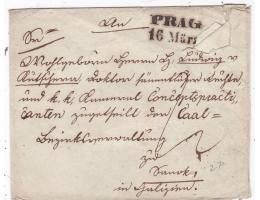 An
PRAG
16 März
Sr
Wohlgeborn Herrn H. Ludwig v
Kutschera, Doktor sämmtlicher Rechte,
und k. k. Kameral Conceptspracti
kanten zugetheilt der Caal-
Bezirksverwaltung
zu
Sanok
in Galizien.